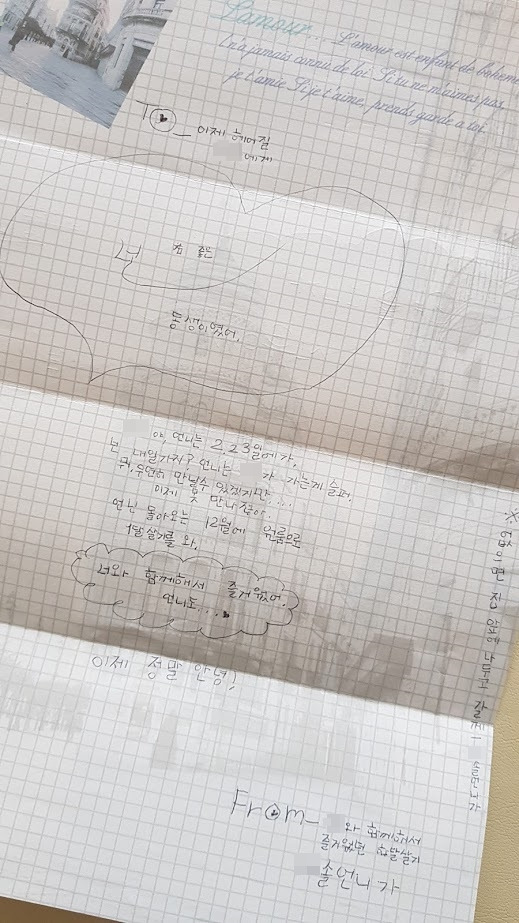 L'amour... L'amour est enfant de bohème
Il n'a jamais connu de loi. Si tu ne m'aimes pas
je t'amie Si je t'aime, prends garde a toi.
To_ 이제 헤어질
에게
넌 참 좋은
동생이였어.
야, 언니는 2,23일에 가.
넌 내일가지? 언니는 가 가는게 슬퍼.
뭐, 우연히 만날수 있겠지만....
이제 못 만나잖아..
언닌 돌아오는 12월에 원룸으로
1달살기를 와.
너와 함께해서 즐거웠어.
언니도...
이제 정말 안녕!
※ 없으면 집 앞에 나두고 갈께ㅡ 솔언니가
From_ 와 함께해서
즐거웠던 한달살기
솔언니가